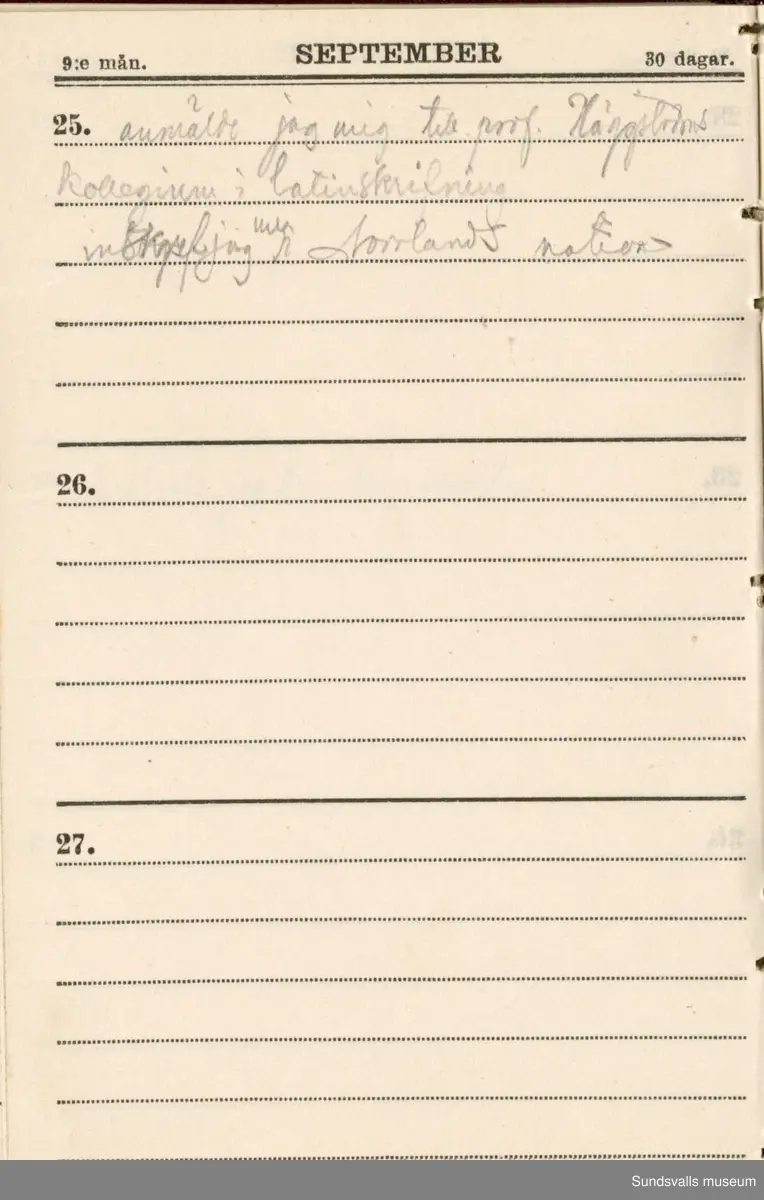 9:e mån. SEPTEMBER 30 dagar.
25. anmälde jag mig till prof. Häggströms
kollegium i latinskrifning
inskref jag mig i Norrlands nation
26.
27.
Sundsvalls museum